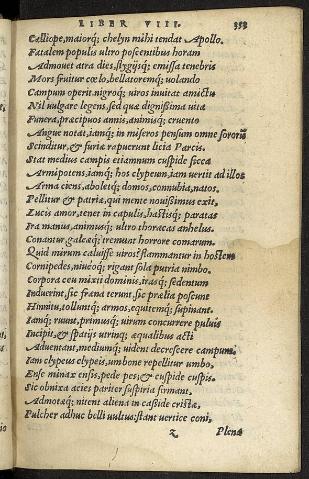 LIBER VIII. 353
Calliope, maiorq; chelyn mihi tendat Apollo.
Fatalem populis ultro poscentibus horam
Admouet atra dies, stygijsq; emissa tenebris
Mors fruitur cœlo, bellatoremq; uolando
Campum operit. nigroq; uiros inuitat amictu
Nil uulgare legens, sed quæ dignissima uita
Funera, præcipuos annis, animisq; cruento
Angue notat, iamq; in miseros pensum omne sororis
Scinditur, & furiæ rapuerunt licia Parcis.
Stat medius campis etiamnum cuspide sicca
Armipotens, iamq; hos clypeum, iam uertit ad illos
Arma ciens, aboletq; domos, connubia, natos.
Pellitur & patriæ, qui mente nouissimus exit,
Lucis amor, tenet in capulis, hastisq; paratas
Ira manus, animusq; ultro thoracas anhelus.
Conantur, galeæq; tremunt horrore comarum.
Quid mirum caluisse uiros? flammantur in hostem
Cornipedes, niueoq; rigant sola putria nimbo.
Corpora ceu mixti dominis, irasq; sedentum
Induerint, sic frena terunt, sic prælia poscunt
Hinnitu, tolluntq; armos, equitemq; supinant.
Iamq; ruunt, primusq; uirum concurrere puluis
Incipit, & spatijs utrinq; æqualibus acti
Aduentant, mediumq; uident decrescere campum.
Iam clypeus clypeis, umbone repellitur umbo,
Ense minax ensis, pede pes, & cuspide cuspis.
Sic obnixa acies pariter suspiria firmant.
Admotæq; nitent aliena in casside cristæ,
Pulcher adhuc belli uultus: stant uertice coni,
z Plena